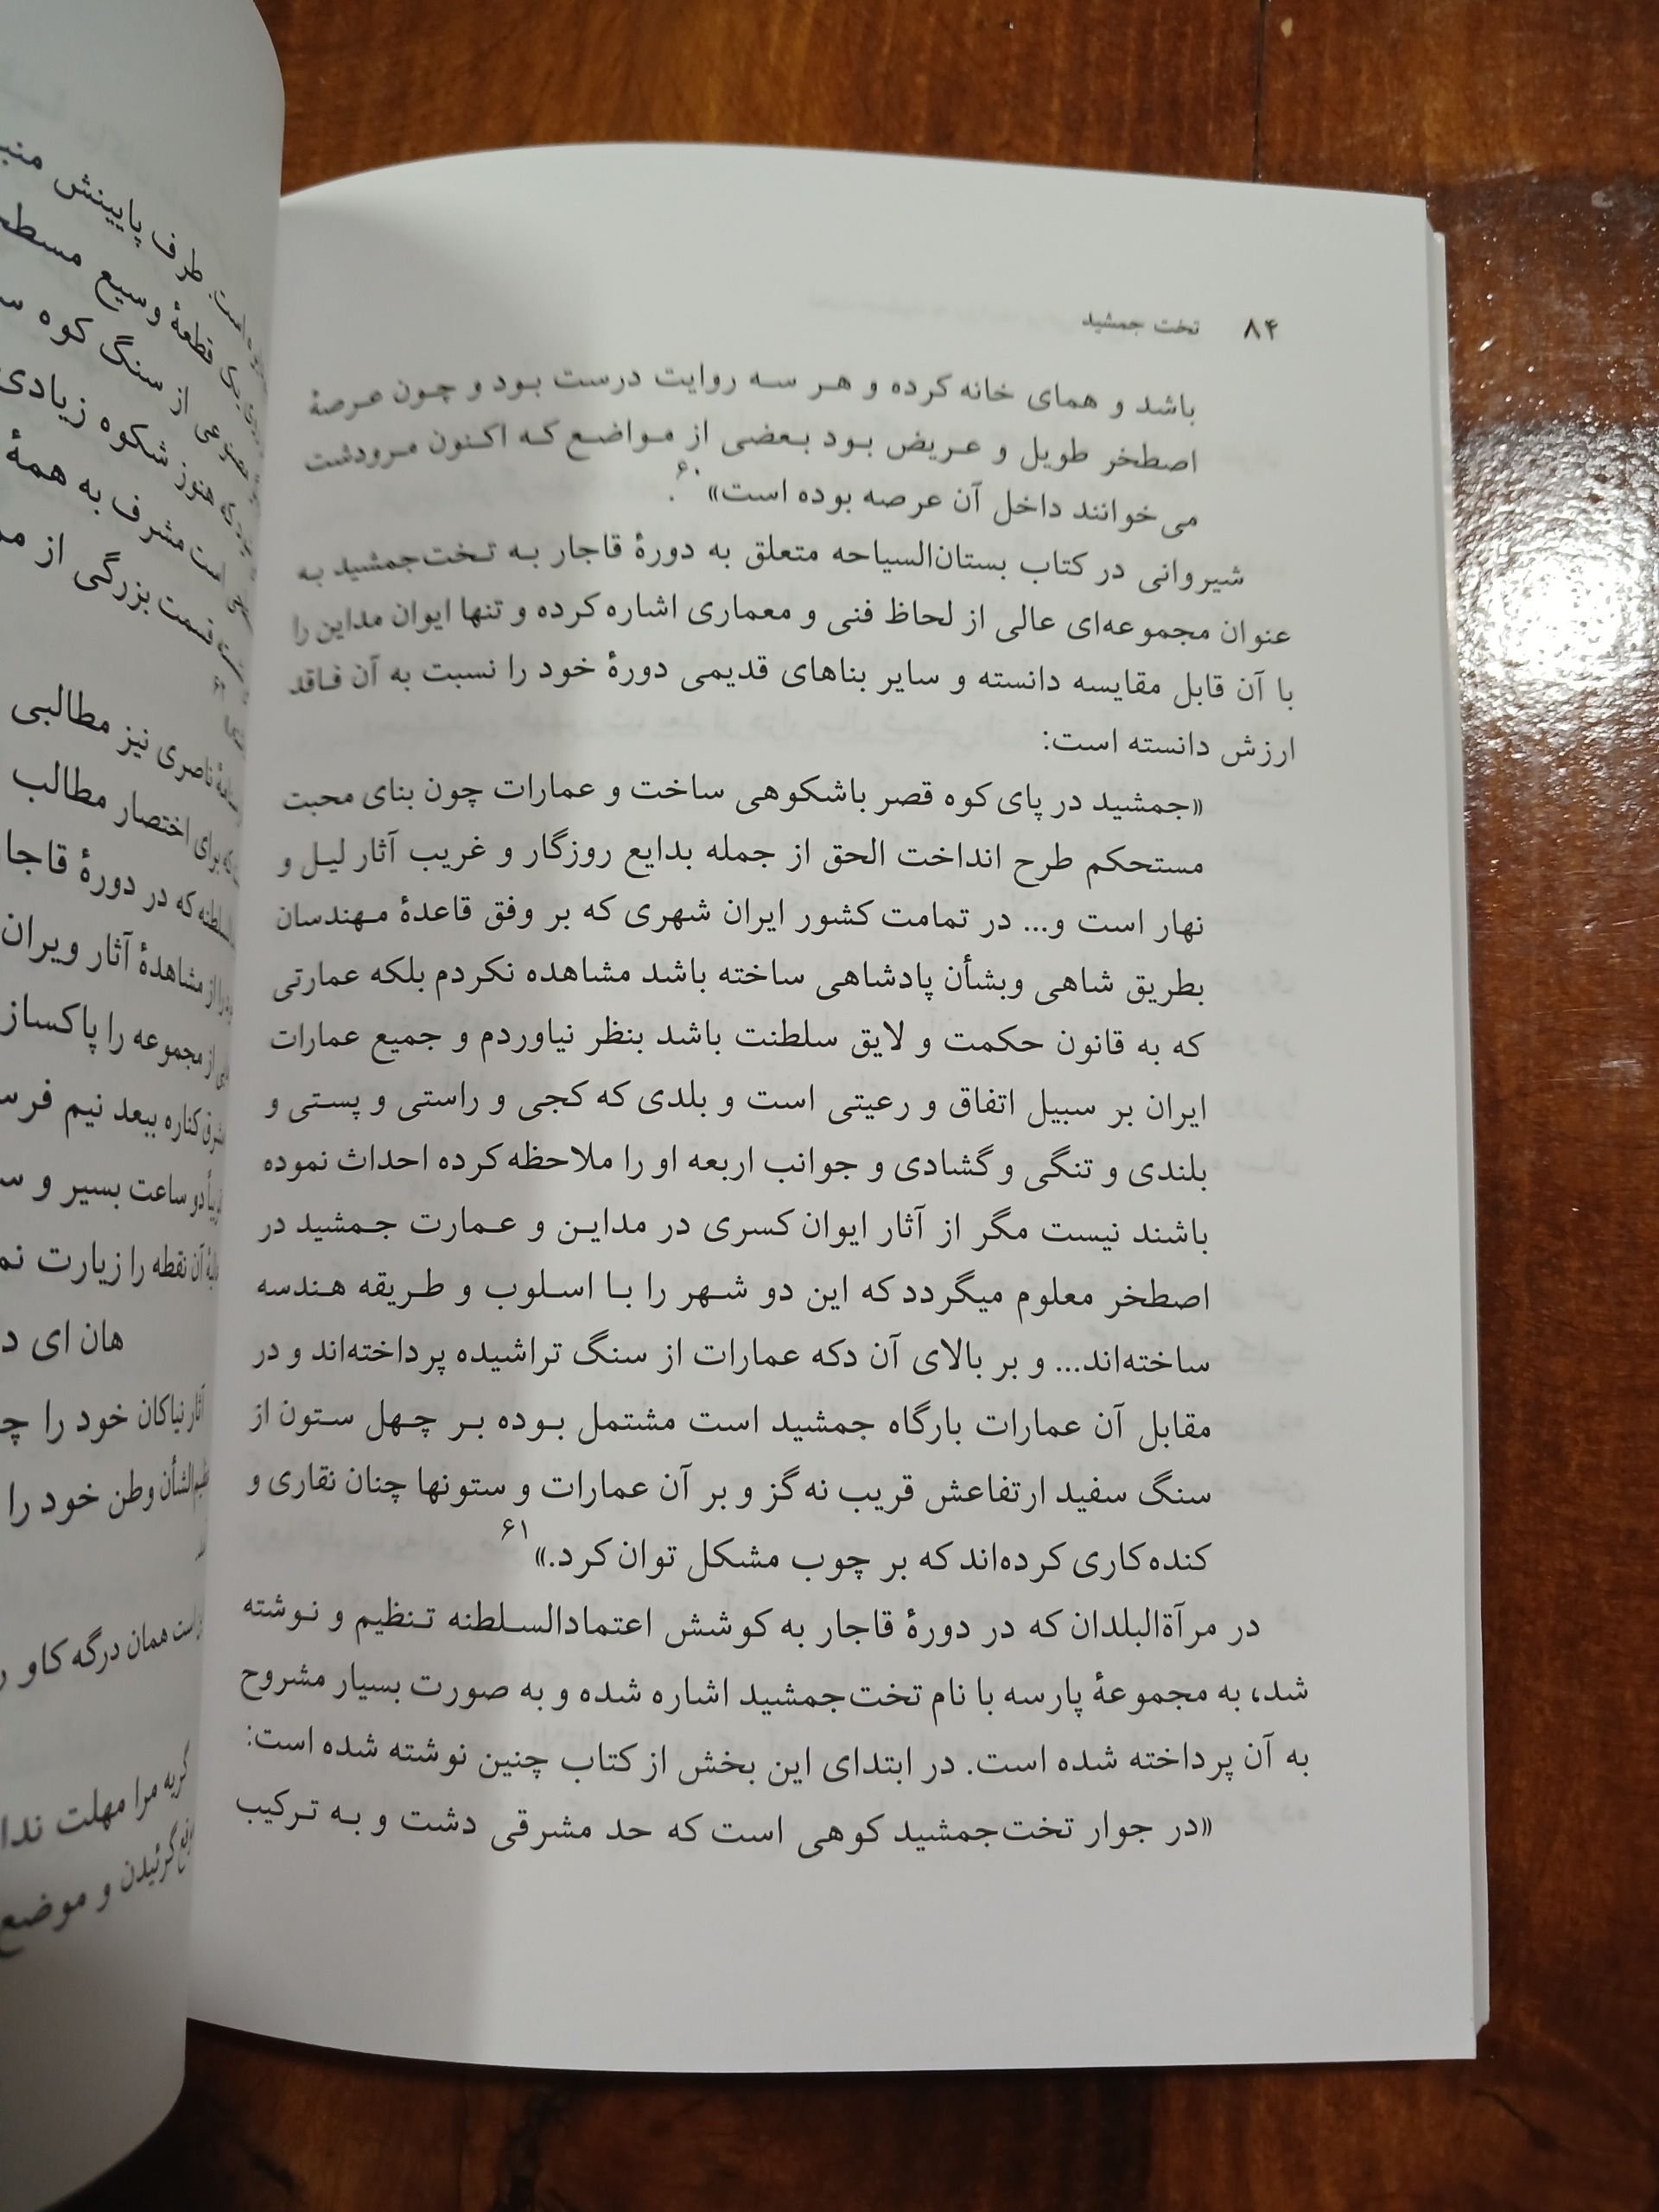 ۸۴ تخت جمشید
باشد و همای خانه کرده و هر سه روایت درست بود و چون عرصهٔ
اصطخر طویل و عریض بود بعضی از مواضع که اکنون مرودشت
می‌خوانند داخل آن عرصه بوده است»۶۰.
شیروانی در کتاب بستان‌السیاحه متعلق به دورهٔ قاجار به تخت‌جمشید به
عنوان مجموعه‌ای عالی از لحاظ فنی و معماری اشاره کرده و تنها ایوان مداین را
با آن قابل مقایسه دانسته و سایر بناهای قدیمی دورهٔ خود را نسبت به آن فاقد
ارزش دانسته است:
«جمشید در پای کوه قصر باشکوهی ساخت و عمارات چون بنای محبت
مستحکم طرح انداخت الحق از جمله بدایع روزگار و غریب آثار لیل و
نهار است و... در تمامت کشور ایران شهری که بر وفق قاعدهٔ مهندسان
بطریق شاهی وبشأن پادشاهی ساخته باشد مشاهده نکردم بلکه عمارتی
که به قانون حکمت و لایق سلطنت باشد بنظر نیاوردم و جمیع عمارات
ایران بر سبیل اتفاق و رعیتی است و بلدی که کجی و راستی و پستی و
بلندی و تنگی و گشادی و جوانب اربعه او را ملاحظه کرده احداث نموده
باشند نیست مگر از آثار ایوان کسری در مداین و عمارت جمشید در
اصطخر معلوم میگردد که این دو شهر را با اسلوب و طریقه هندسه
ساخته‌اند... و بر بالای آن دکه عمارات از سنگ تراشیده پرداخته‌اند و در
مقابل آن عمارات بارگاه جمشید است مشتمل بوده بر چهل ستون از
سنگ سفید ارتفاعش قریب نه گز و بر آن عمارات و ستونها چنان نقاری و
کنده‌کاری کرده‌اند که بر چوب مشکل توان کرد.»۶۱
در مرآةالبلدان که در دورهٔ قاجار به کوشش اعتمادالسلطنه تنظیم و نوشته
شد، به مجموعهٔ پارسه با نام تخت‌جمشید اشاره شده و به صورت بسیار مشروح
به آن پرداخته شده است. در ابتدای این بخش از کتاب چنین نوشته شده است:
«در جوار تخت‌جمشید کوهی است که حد مشرقی دشت و به ترکیب
طرف پایینش
قطعهٔ وسیع
از سنگ کوه
هنوز شکوه زیادی
است مشرف به همهٔ
قسمت بزرگی از
ناصری نیز مطالبی
که برای اختصار مطالب
که در دورهٔ
از مشاهدهٔ آثار ویران
از مجموعه را
کناره ببعد نیم
دو ساعت بسیر و
آن نقطه را زیارت
هان ای
آثار نیاکان خود را
وطن خود را
است همان درگه کاو
گریه مرا مهلت
و موضع